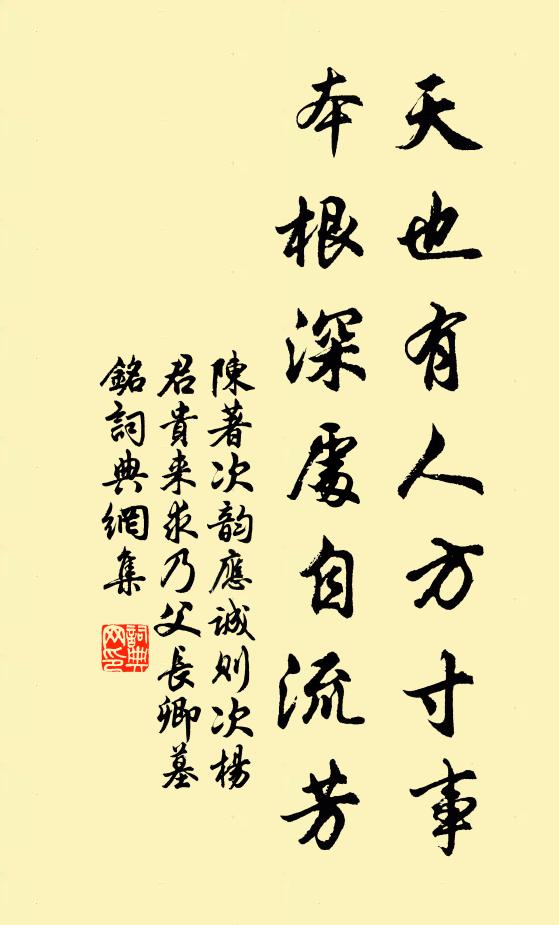 天也有人方寸事
本根深處自流芳
陳著次韵應誠則次楊
君貴来求乃父長卿墓
銘詞典網集
詞典
网印